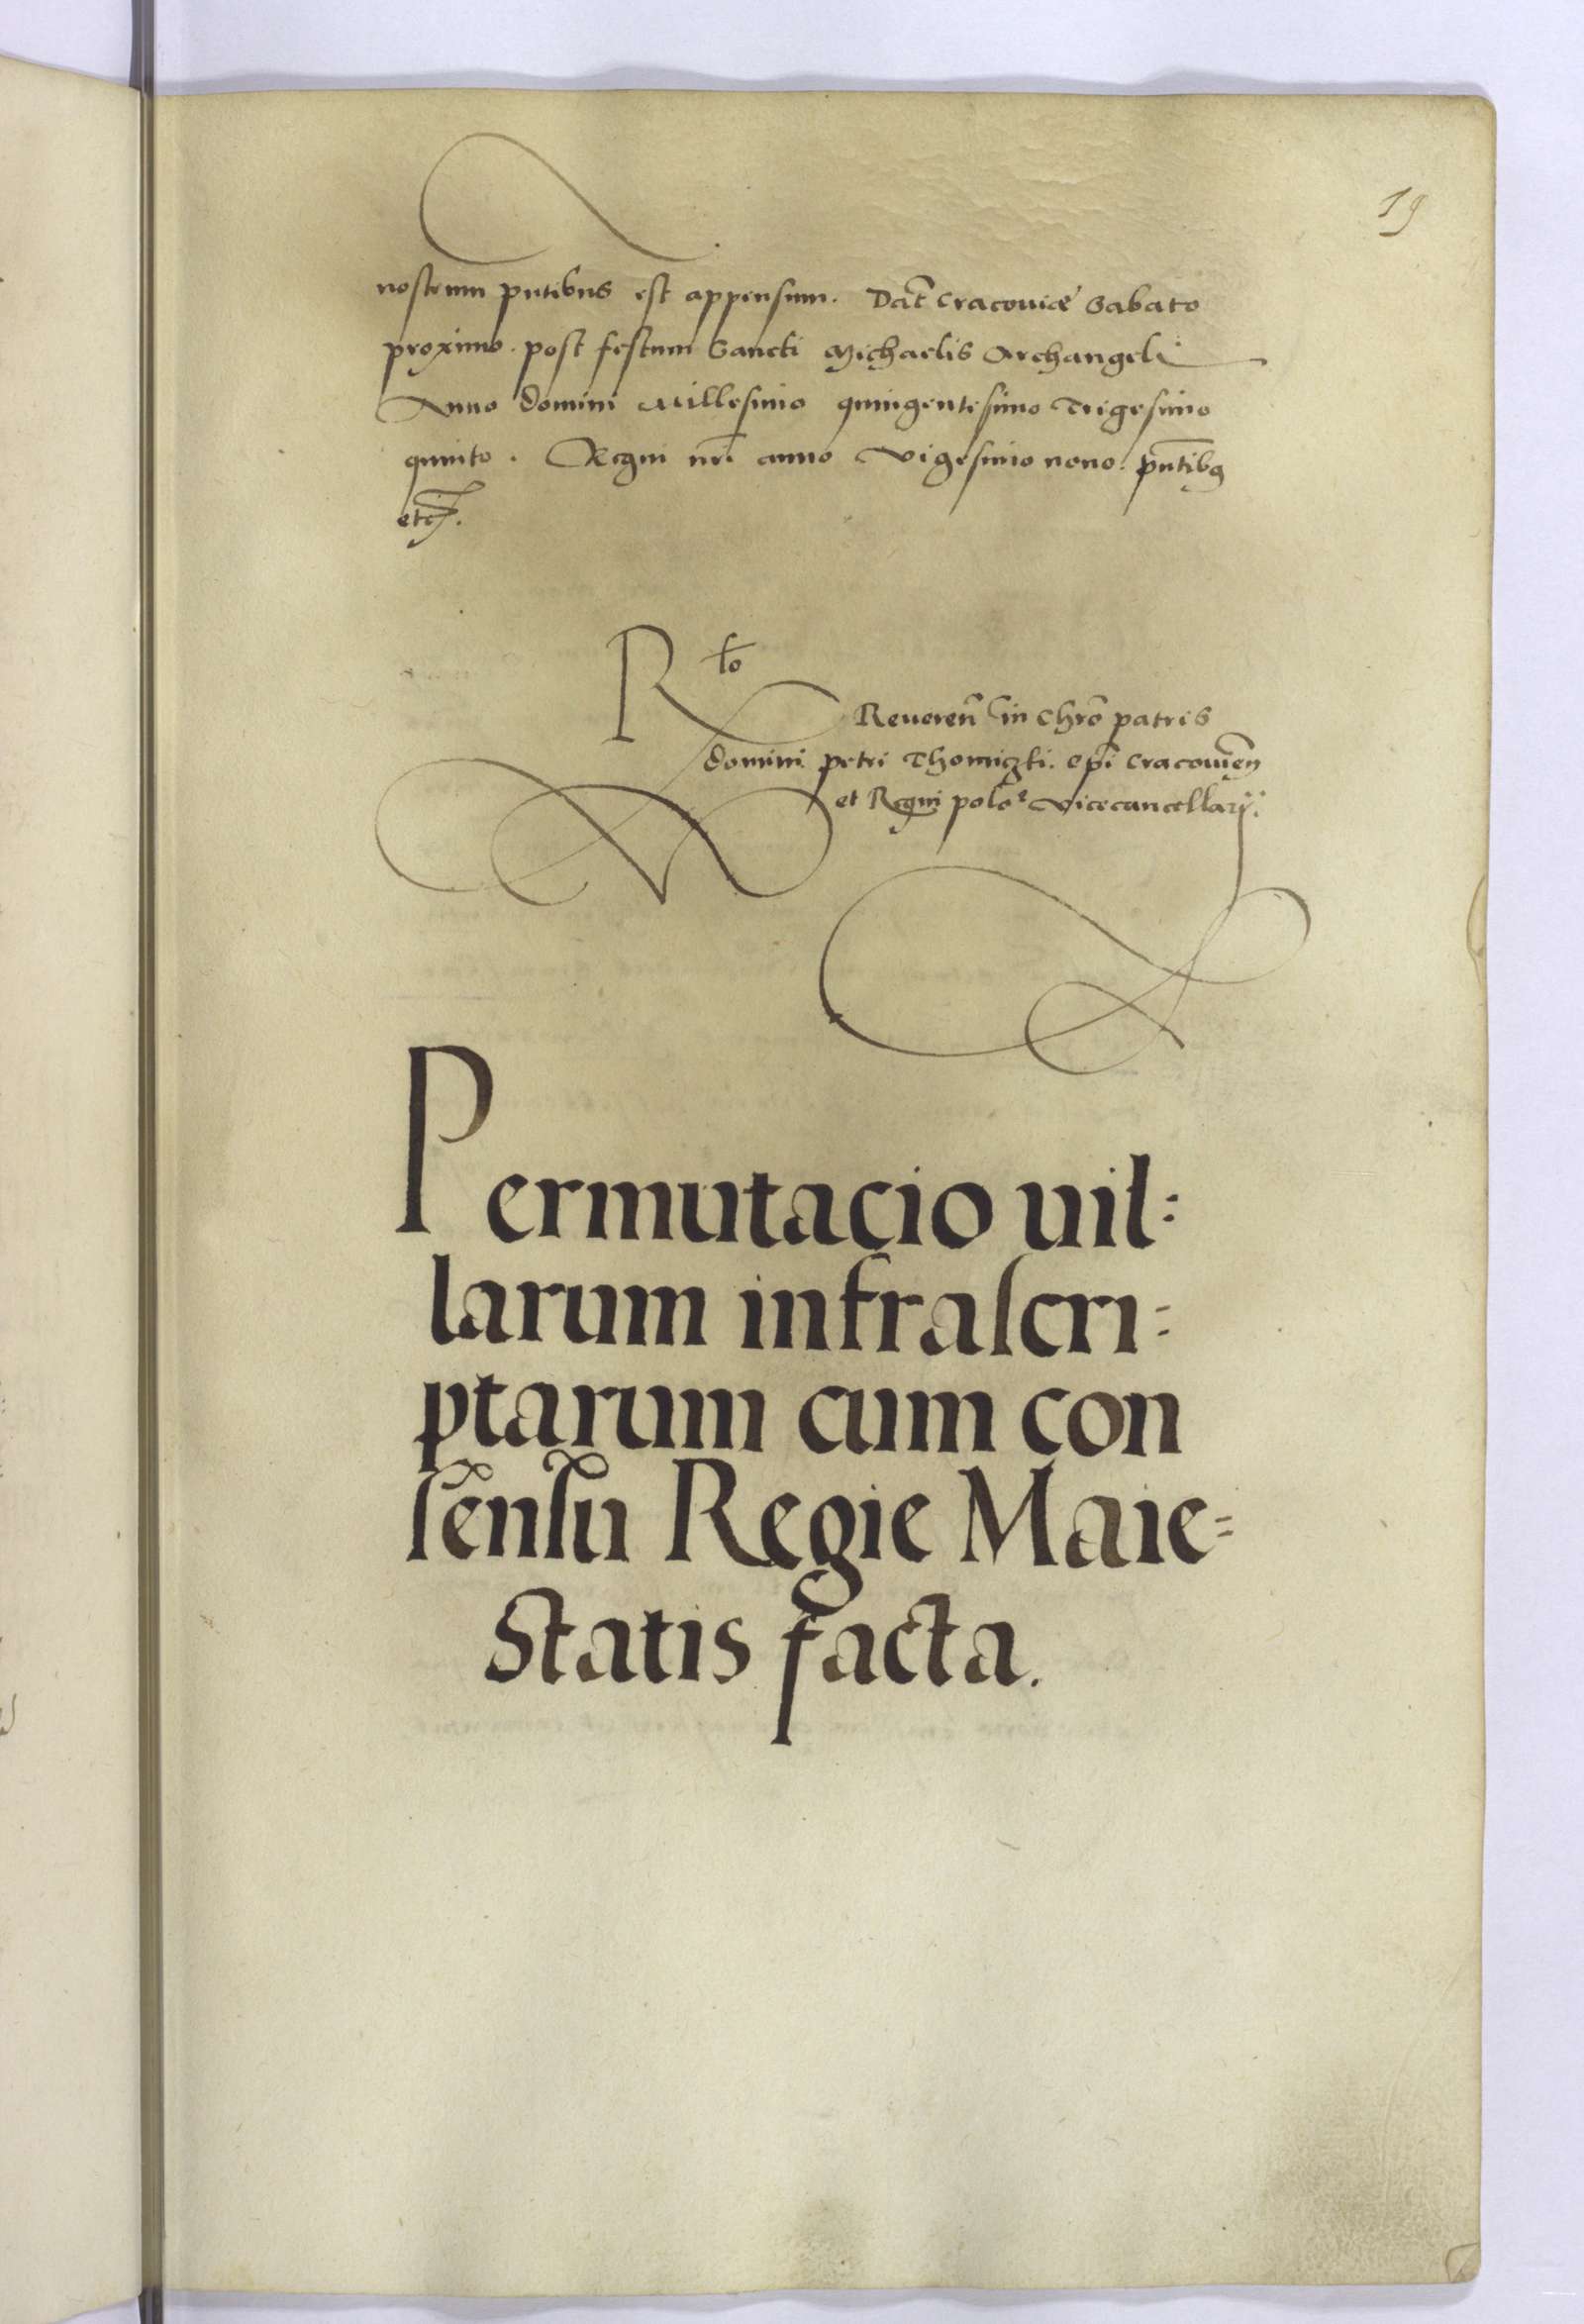 19
nostrum pntibus est appensum. Dat Cracouiæ Sabato
proximo. post festum Sancti Michaelis Archangeli
Anno domini Millesimo quingentesimo Trigesimo
quinto. Regni nri anno Vigesimo nono. pntibus
etc.
R to
Reueren in Chro patris
domini petri Thomiczki. Epi Cracouien
et Regni polo Vicecancellarij.
Permutacio uil=
larum infrascri=
ptarum cum con
sensu Regie Maie=
statis facta.